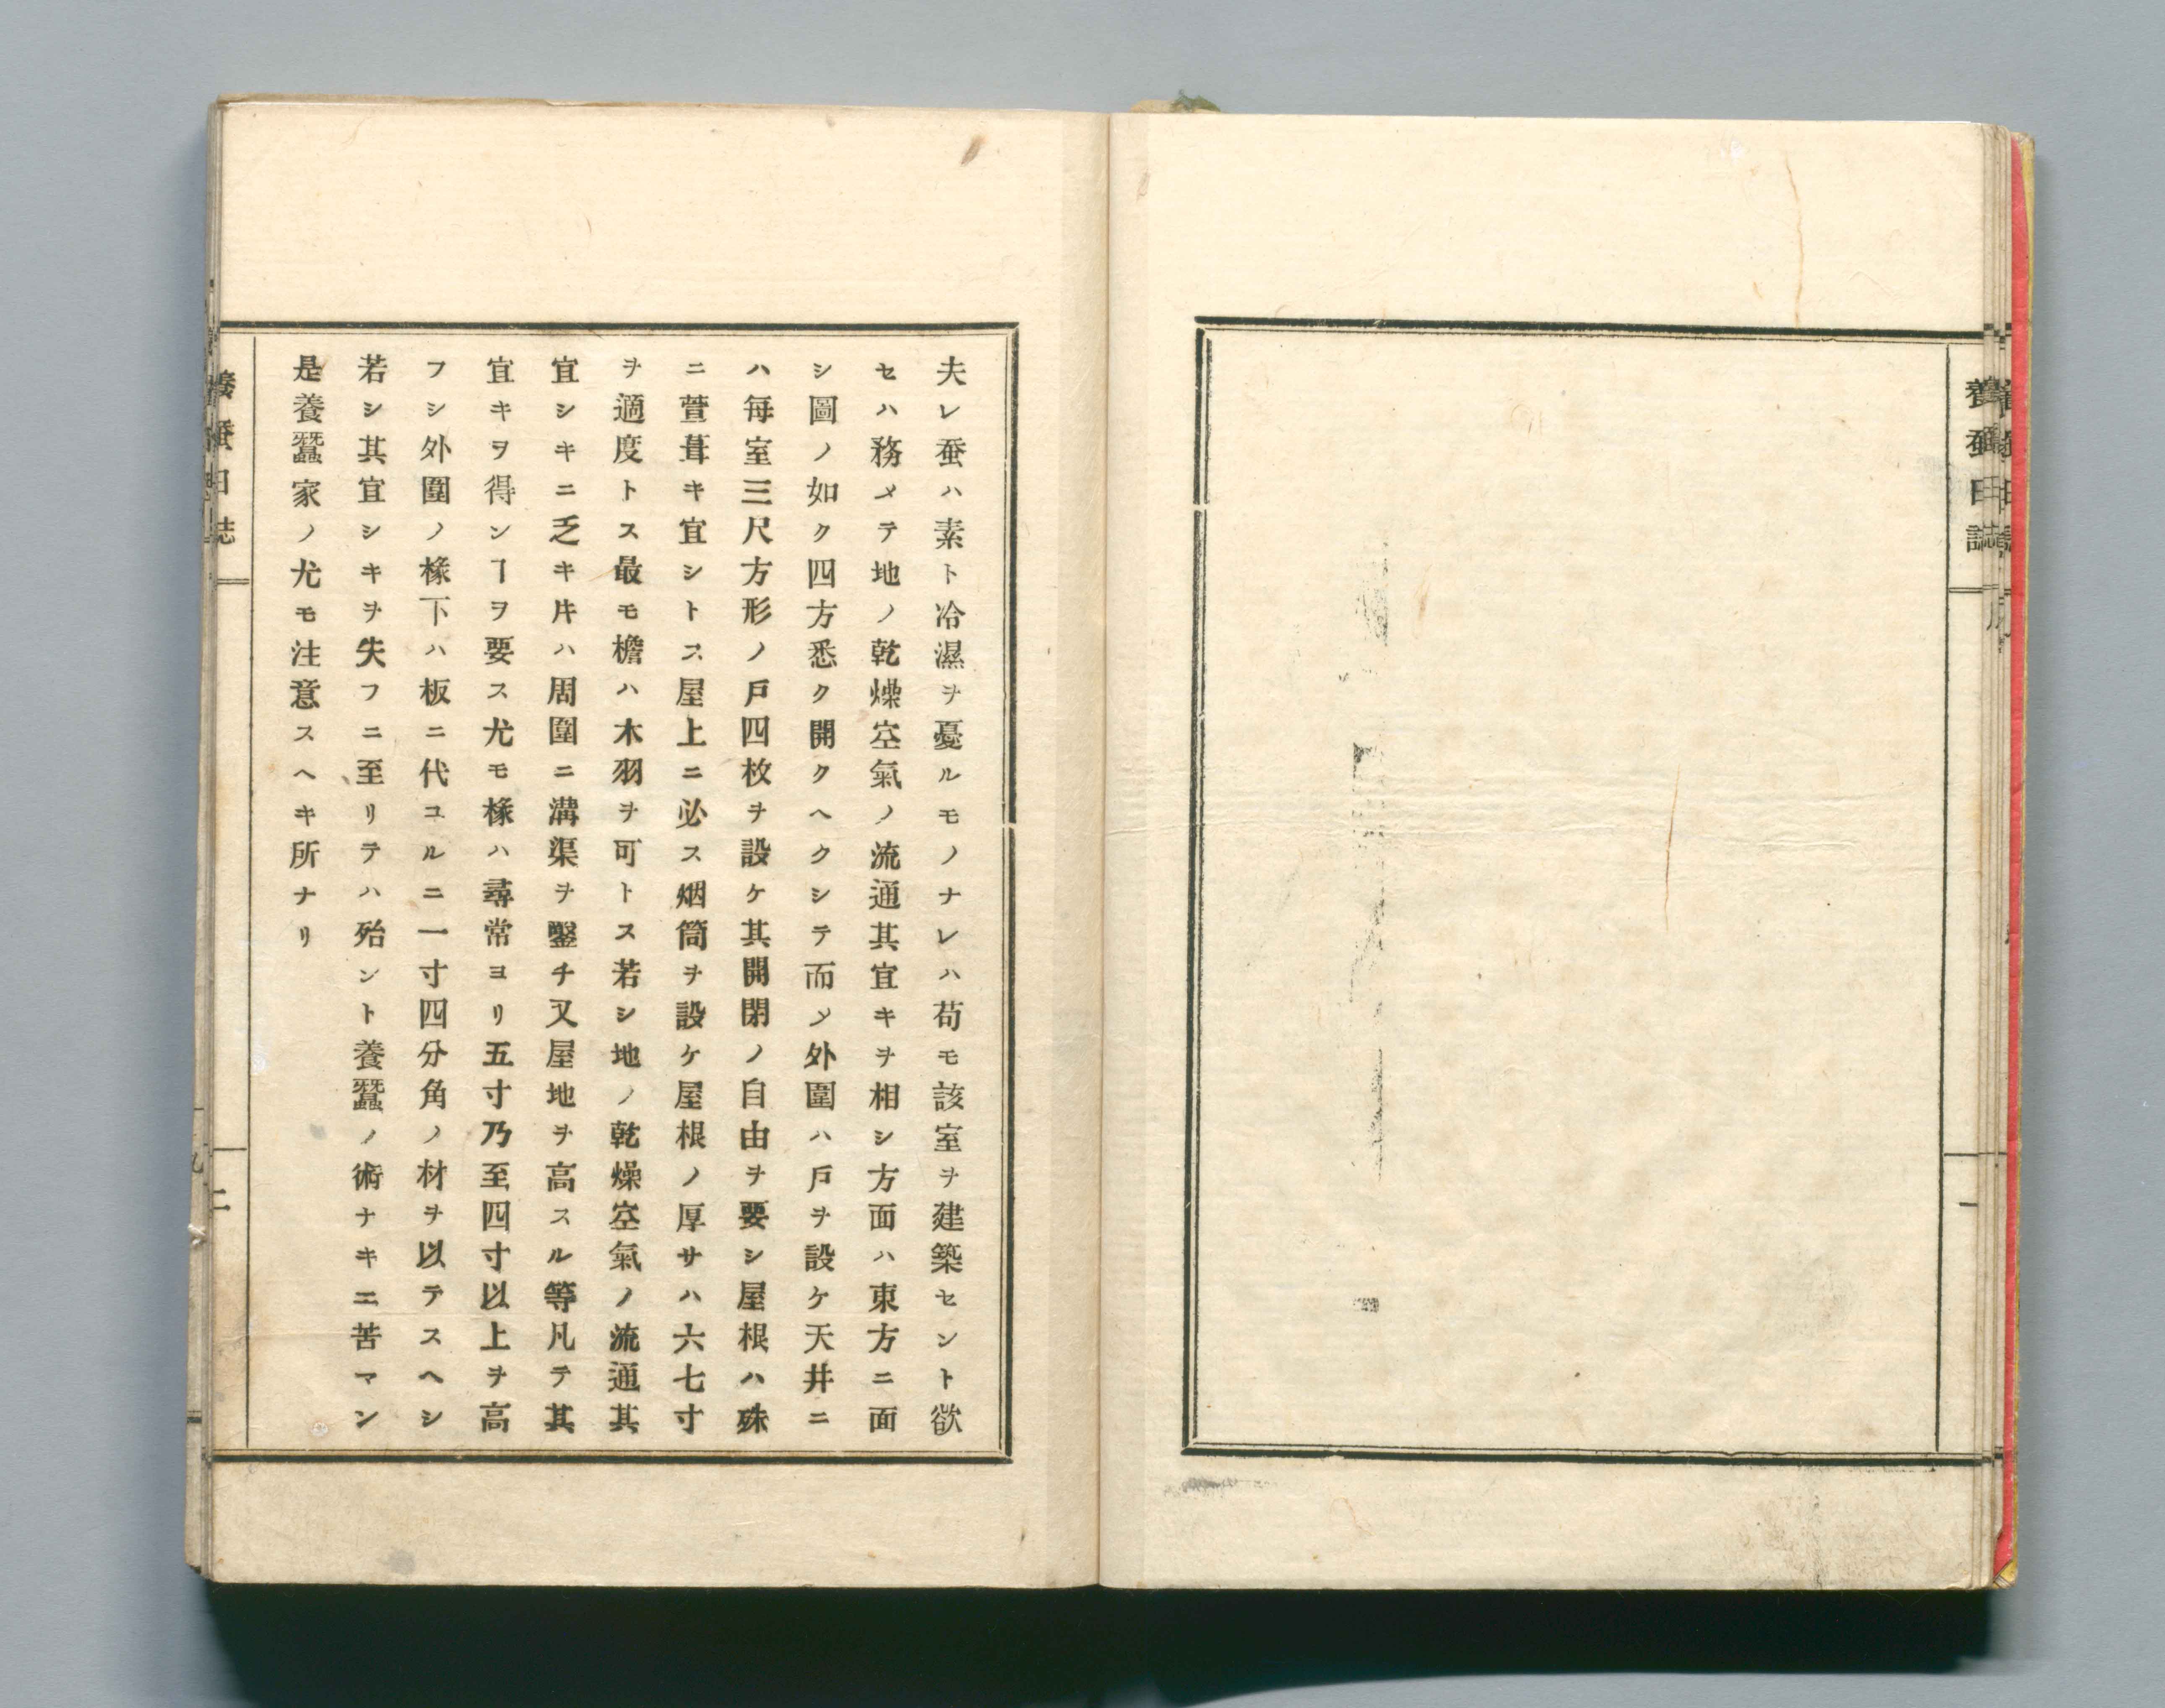 養蚕日誌
一
夫レ蚕ハ素ト冷濕ヲ憂ルモノナレハ苟モ該室ヲ建築セント欲
セハ務メテ地ノ乾燥空氣ノ流通其宜キヲ相シ方面ハ東方ニ面
シ圖ノ如ク四方悉ク開クヘクシテ而〆外圍ハ戸ヲ設ケ天井ニ
ハ每室三尺方形ノ戸四枚ヲ設ケ其開閉ノ自由ヲ要シ屋根ハ殊
ニ萱葺キ宜シトス屋上ニ必ス烟筒ヲ設ケ屋根ノ厚サハ六七寸
ヲ適度トス最モ檐ハ木羽ヲ可トス若シ地ノ乾燥空氣ノ流通其
宜シキニ乏キ片ハ周圍ニ溝渠ヲ鑿チ又屋地ヲ高スル等凡テ其
宜キヲ得ンヿヲ要ス尤モ椽ハ尋常ヨリ五寸乃至四寸以上ヲ高
フシ外圍ノ椽下ハ板ニ代ユルニ一寸四分角ノ材ヲ以テスヘシ
若シ其宜シキヲ失フニ至リテハ殆ント養蠶ノ術ナキニ苦マン
是養蠶家ノ尤モ注意スヘキ所ナリ
養蚕日誌
二